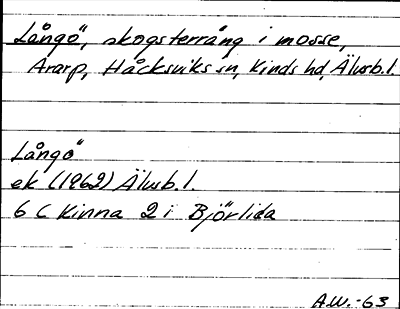 Långö, skogsterräng i mosse,
Ararp, Håcksviks sn, Kinds hd, Älvsb.l.
Långö
ek (1962) Älvsb.l.
6 C Kinna 2 i Björlida
A.W.-63